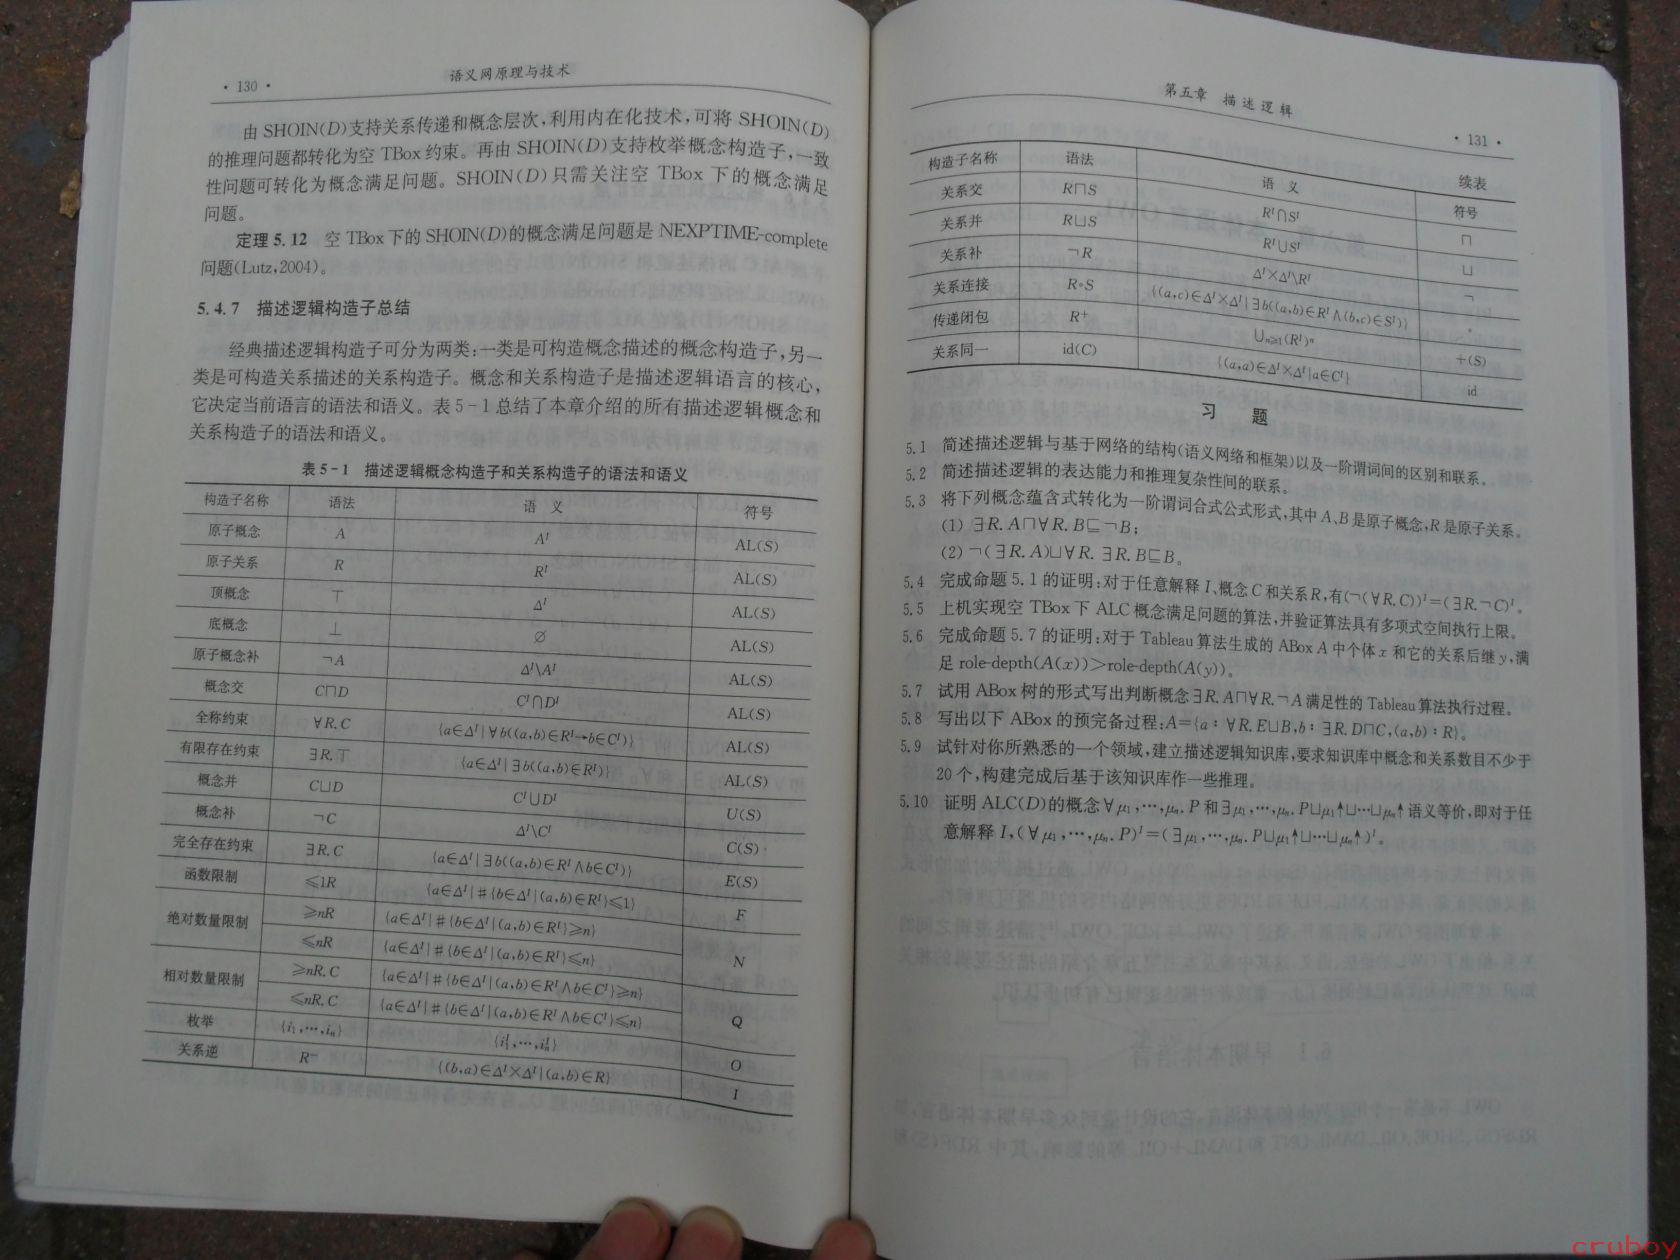 · 130 ·
语义网原理与技术
由 SHOIN(D)支持关系传递和概念层次,利用内在化技术,可将 SHOIN(D)
的推理问题都转化为空 TBox 约束。再由 SHOIN(D)支持枚举概念构造子,一致
性问题可转化为概念满足问题。SHOIN(D)只需关注空 TBox 下的概念满足
问题。
定理 5.12 空 TBox 下的 SHOIN(D)的概念满足问题是 NEXPTIME-complete
问题(Lutz,2004)。
5.4.7 描述逻辑构造子总结
经典描述逻辑构造子可分为两类:一类是可构造概念描述的概念构造子,另一
类是可构造关系描述的关系构造子。概念和关系构造子是描述逻辑语言的核心,
它决定当前语言的语法和语义。表 5-1 总结了本章介绍的所有描述逻辑概念和
关系构造子的语法和语义。
表 5-1 描述逻辑概念构造子和关系构造子的语法和语义
构造子名称 语法 语 义 符号
原子概念 A Aᴵ AL(S)
原子关系 R Rᴵ AL(S)
顶概念 ⊤ Δᴵ AL(S)
底概念 ⊥ ∅ AL(S)
原子概念补 ¬A Δᴵ\Aᴵ AL(S)
概念交 C⊓D Cᴵ∩Dᴵ AL(S)
全称约束 ∀R.C {a∈Δᴵ|∀b((a,b)∈Rᴵ→b∈Cᴵ)} AL(S)
有限存在约束 ∃R.⊤ {a∈Δᴵ|∃b((a,b)∈Rᴵ)} AL(S)
概念并 C⊔D Cᴵ∪Dᴵ U(S)
概念补 ¬C Δᴵ\Cᴵ C(S)
完全存在约束 ∃R.C {a∈Δᴵ|∃b((a,b)∈Rᴵ∧b∈Cᴵ)} E(S)
函数限制 ≤1R {a∈Δᴵ|#{b∈Δᴵ|(a,b)∈Rᴵ}≤1} F
绝对数量限制 ≥nR {a∈Δᴵ|#{b∈Δᴵ|(a,b)∈Rᴵ}≥n} N
≤nR {a∈Δᴵ|#{b∈Δᴵ|(a,b)∈Rᴵ}≤n}
相对数量限制 ≥nR.C {a∈Δᴵ|#{b∈Δᴵ|(a,b)∈Rᴵ∧b∈Cᴵ}≥n} Q
≤nR.C {a∈Δᴵ|#{b∈Δᴵ|(a,b)∈Rᴵ∧b∈Cᴵ}≤n}
枚举 {i₁,…,iₙ} {i₁ᴵ,…,iₙᴵ} O
关系逆 R⁻ {(b,a)∈Δᴵ×Δᴵ|(a,b)∈R} I
第五章 描述逻辑
· 131 ·
续表
构造子名称 语法 语 义 符号
关系交 R⊓S Rᴵ∩Sᴵ ⊓
关系并 R⊔S Rᴵ∪Sᴵ ⊔
关系补 ¬R Δᴵ×Δᴵ\Rᴵ ¬
关系连接 R∘S {(a,c)∈Δᴵ×Δᴵ|∃b((a,b)∈Rᴵ∧(b,c)∈Sᴵ)} ∘
传递闭包 R⁺ ∪ₙ≥₁(Rᴵ)ⁿ +(S)
关系同一 id(C) {(a,a)∈Δᴵ×Δᴵ|a∈Cᴵ} id
习 题
5.1 简述描述逻辑与基于网络的结构(语义网络和框架)以及一阶谓词间的区别和联系。
5.2 简述描述逻辑的表达能力和推理复杂性间的联系。
5.3 将下列概念蕴含式转化为一阶谓词合式公式形式,其中 A、B是原子概念,R是原子关系。
(1) ∃R.A⊓∀R.B⊑¬B;
(2) ¬(∃R.A)⊔∀R.∃R.B⊑B。
5.4 完成命题 5.1 的证明:对于任意解释 I、概念 C 和关系 R,有(¬(∀R.C))ᴵ=(∃R.¬C)ᴵ。
5.5 上机实现空 TBox 下 ALC 概念满足问题的算法,并验证算法具有多项式空间执行上限。
5.6 完成命题 5.7 的证明:对于 Tableau 算法生成的 ABox A 中个体 x 和它的关系后继 y,满
足 role-depth(A(x))>role-depth(A(y))。
5.7 试用 ABox 树的形式写出判断概念∃R.A⊓∀R.¬A 满足性的 Tableau 算法执行过程。
5.8 写出以下 ABox 的预完备过程:A={a:∀R.E⊔B,b:∃R.D⊓C,(a,b):R}。
5.9 试针对你所熟悉的一个领域,建立描述逻辑知识库,要求知识库中概念和关系数目不少于
20 个,构建完成后基于该知识库作一些推理。
5.10 证明 ALC(D)的概念∀μ₁,…,μₙ.P 和∃μ₁,…,μₙ.P⊔μ₁↑⊔…⊔μₙ↑语义等价,即对于任
意解释 I,(∀μ₁,…,μₙ.P)ᴵ=(∃μ₁,…,μₙ.P⊔μ₁↑⊔…⊔μₙ↑)ᴵ。
cruboy